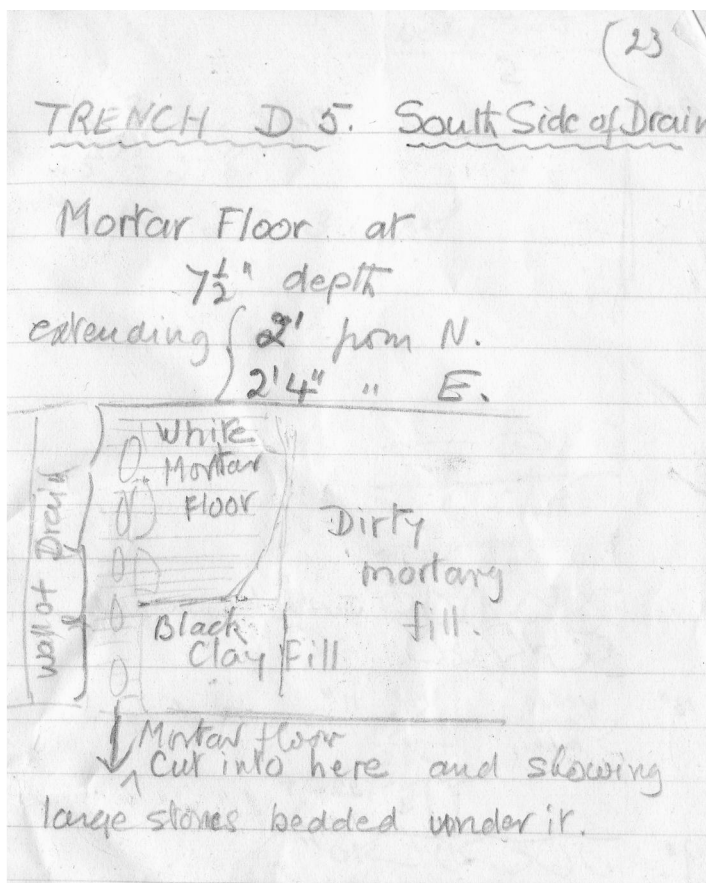 (23
TRENCH D 5. South Side of Drain
Mortar Floor at
7½" depth
extending { 2' from N.
2'4" " E.
White
Mortar
Floor
Wall of Drain
Dirty
mortary
fill.
Black
Clay Fill
Mortar floor
Cut into here and showing
large stones bedded under it.